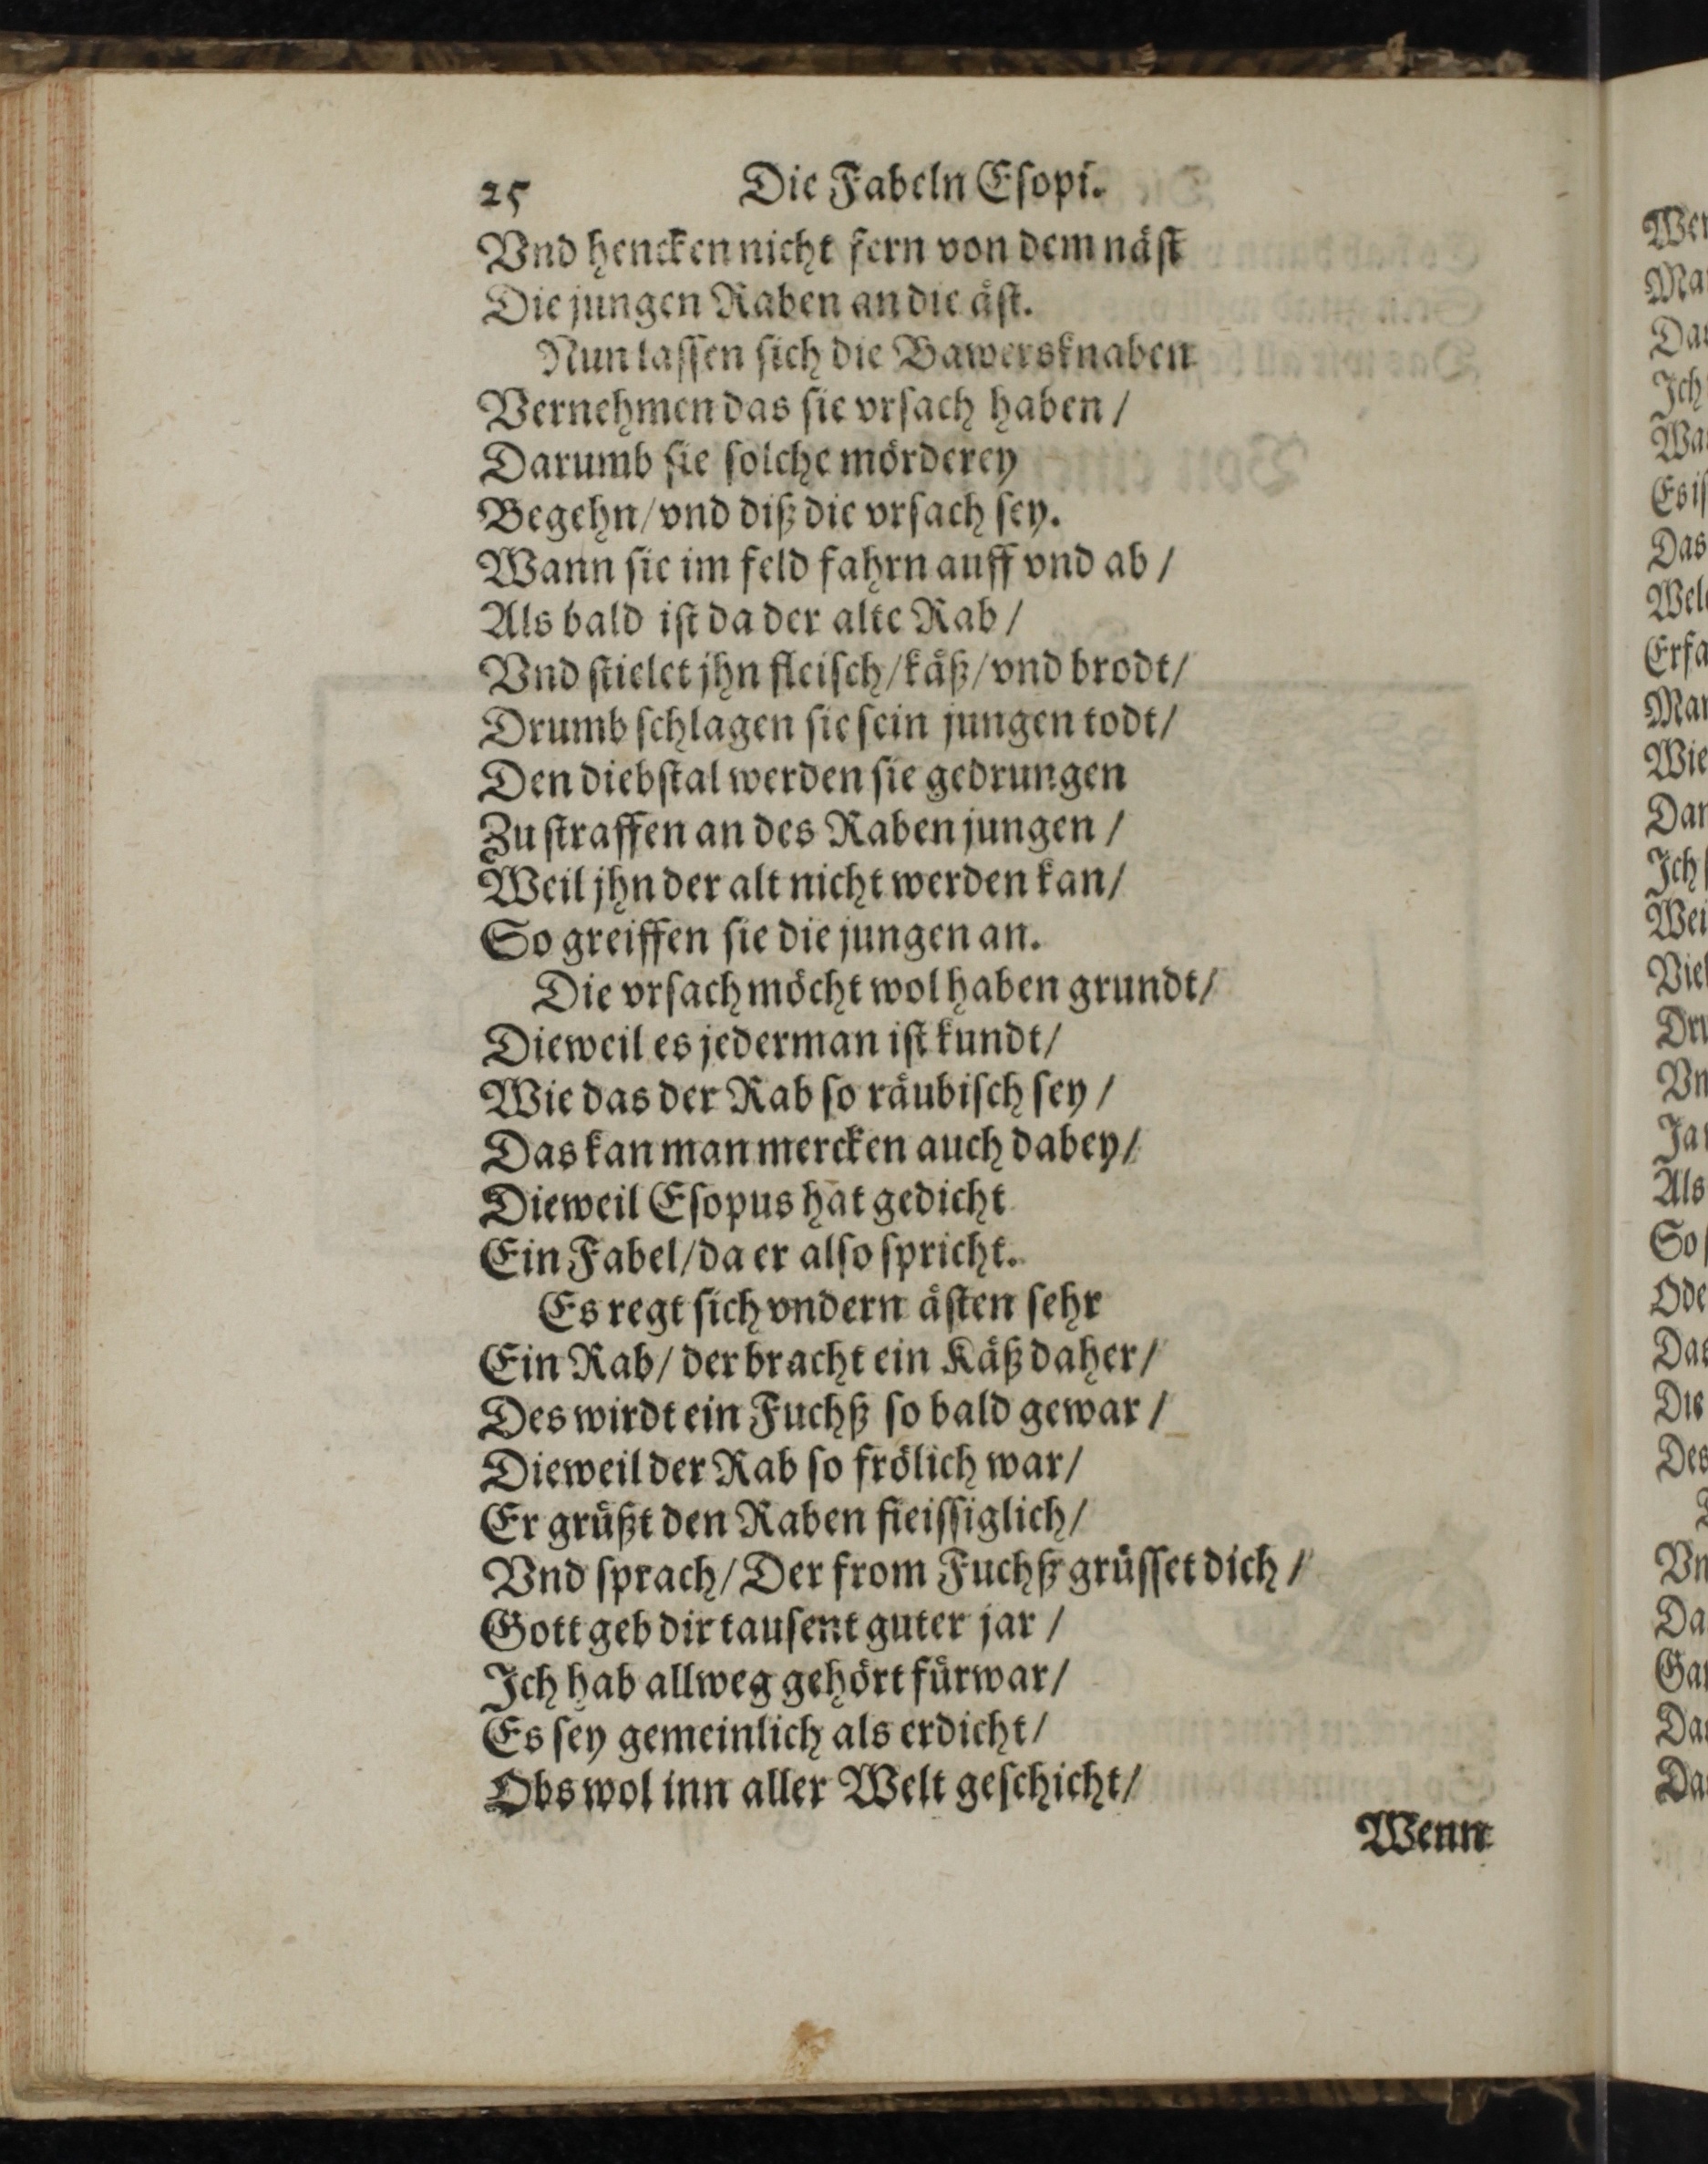 25 Die Fabeln Eſopi.
Vnd hencken nicht fern von dem näſt
Die jungen Raben an die äſt.
Nun laſſen ſich die Bawersknaben
Vernehmen das ſie vrſach haben /
Darumb ſie ſolche mörderey
Begehn/ vnd diß die vrſach ſey.
Wann ſie im feld fahrn auff vnd ab /
Als bald iſt da der alte Rab /
Vnd ſtielet jhn fleiſch/ käß/ vnd brodt/
Drumb ſchlagen ſie ſein jungen todt/
Den diebſtal werden ſie gedrungen
Zu ſtraffen an des Raben jungen /
Weil jhn der alt nicht werden kan/
So greiffen ſie die jungen an.
Die vrſach möcht wol haben grundt/
Dieweil es jederman iſt kundt/
Wie das der Rab ſo räubiſch ſey /
Das kan man mercken auch dabey/
Dieweil Eſopus hat gedicht
Ein Fabel/ da er alſo ſpricht.
Es regt ſich vndern äſten ſehr
Ein Rab/ der bracht ein Käß daher/
Des wirdt ein Fuchß ſo bald gewar /
Dieweil der Rab ſo frölich war/
Er grüßt den Raben fleiſſiglich/
Vnd ſprach/ Der from Fuchß grüſſet dich /
Gott geb dir tauſent guter jar /
Ich hab allweg gehört fürwar/
Es ſey gemeinlich als erdicht/
Obs wol inn aller Welt geſchicht/
Wenn